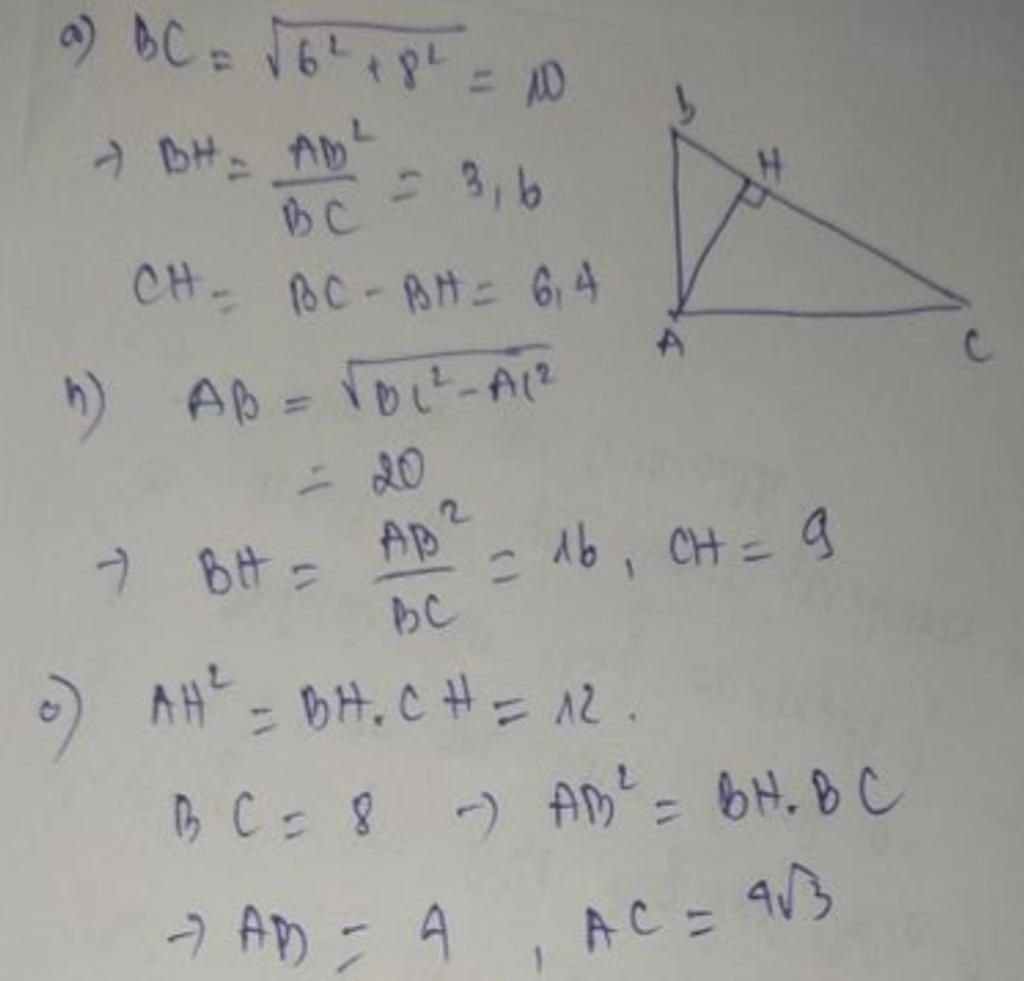 a) BC = √(6² + 8²) = 10
→ BH = AB²/BC = 3,6
CH = BC - BH = 6,4
B
H
A
C
b) AB = √(BC² - AC²)
= 20
→ BH = AB²/BC = 16, CH = 9
c) AH² = BH.CH = 12.
BC = 8 → AB² = BH.BC
→ AB = 4, AC = 4√3